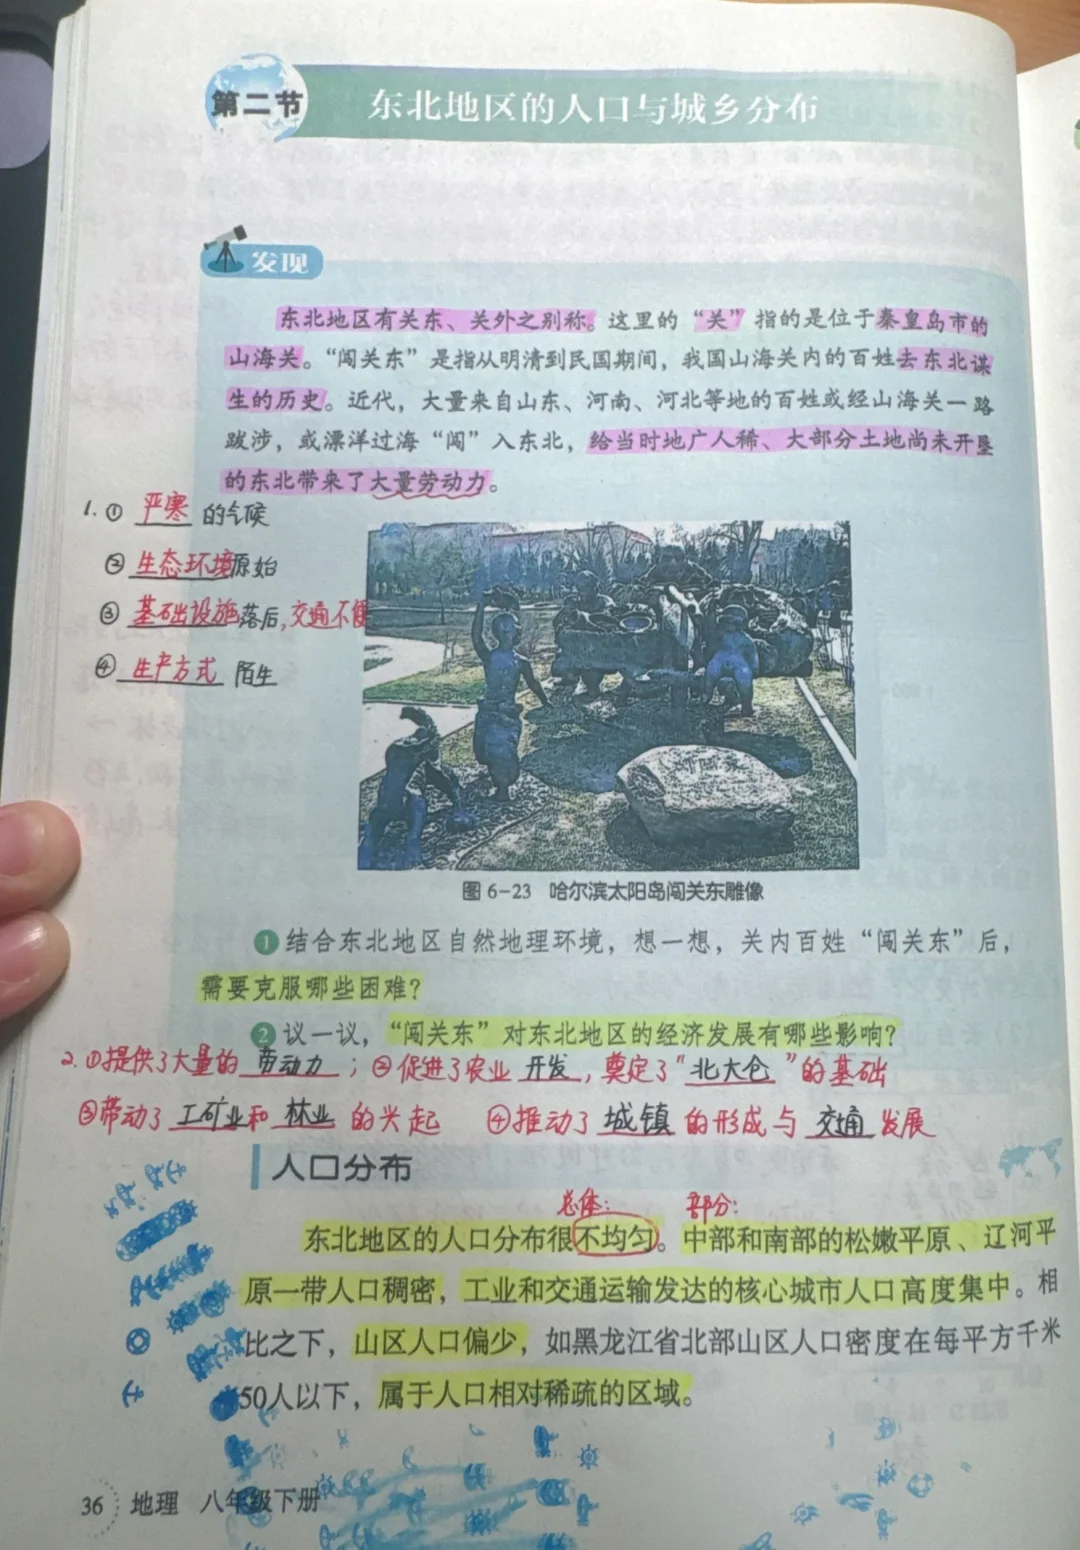 第二节 东北地区的人口与城乡分布
发现
东北地区有关东、关外之别称。这里的“关”指的是位于秦皇岛市的
山海关。“闯关东”是指从明清到民国期间，我国山海关内的百姓去东北谋
生的历史。近代，大量来自山东、河南、河北等地的百姓或经山海关一路
跋涉，或漂洋过海“闯”入东北，给当时地广人稀、大部分土地尚未开垦
的东北带来了大量劳动力。
1.① 严寒 的气候
② 生态环境原始
③ 基础设施落后,交通不便
④ 生产方式 陌生
图 6-23 哈尔滨太阳岛闯关东雕像
1 结合东北地区自然地理环境，想一想，关内百姓“闯关东”后，
需要克服哪些困难？
2 议一议，“闯关东”对东北地区的经济发展有哪些影响？
2.①提供了大量的 劳动力 ；②促进了农业 开发 ，奠定了“北大仓”的基础
③带动了 工矿业和 林业 的兴起 ④推动了 城镇 的形成与 交通 发展
人口分布
总体： 部分：
东北地区的人口分布很不均匀。中部和南部的松嫩平原、辽河平
原一带人口稠密，工业和交通运输发达的核心城市人口高度集中。相
比之下，山区人口偏少，如黑龙江省北部山区人口密度在每平方千米
50人以下，属于人口相对稀疏的区域。
36 地理 八年级下册